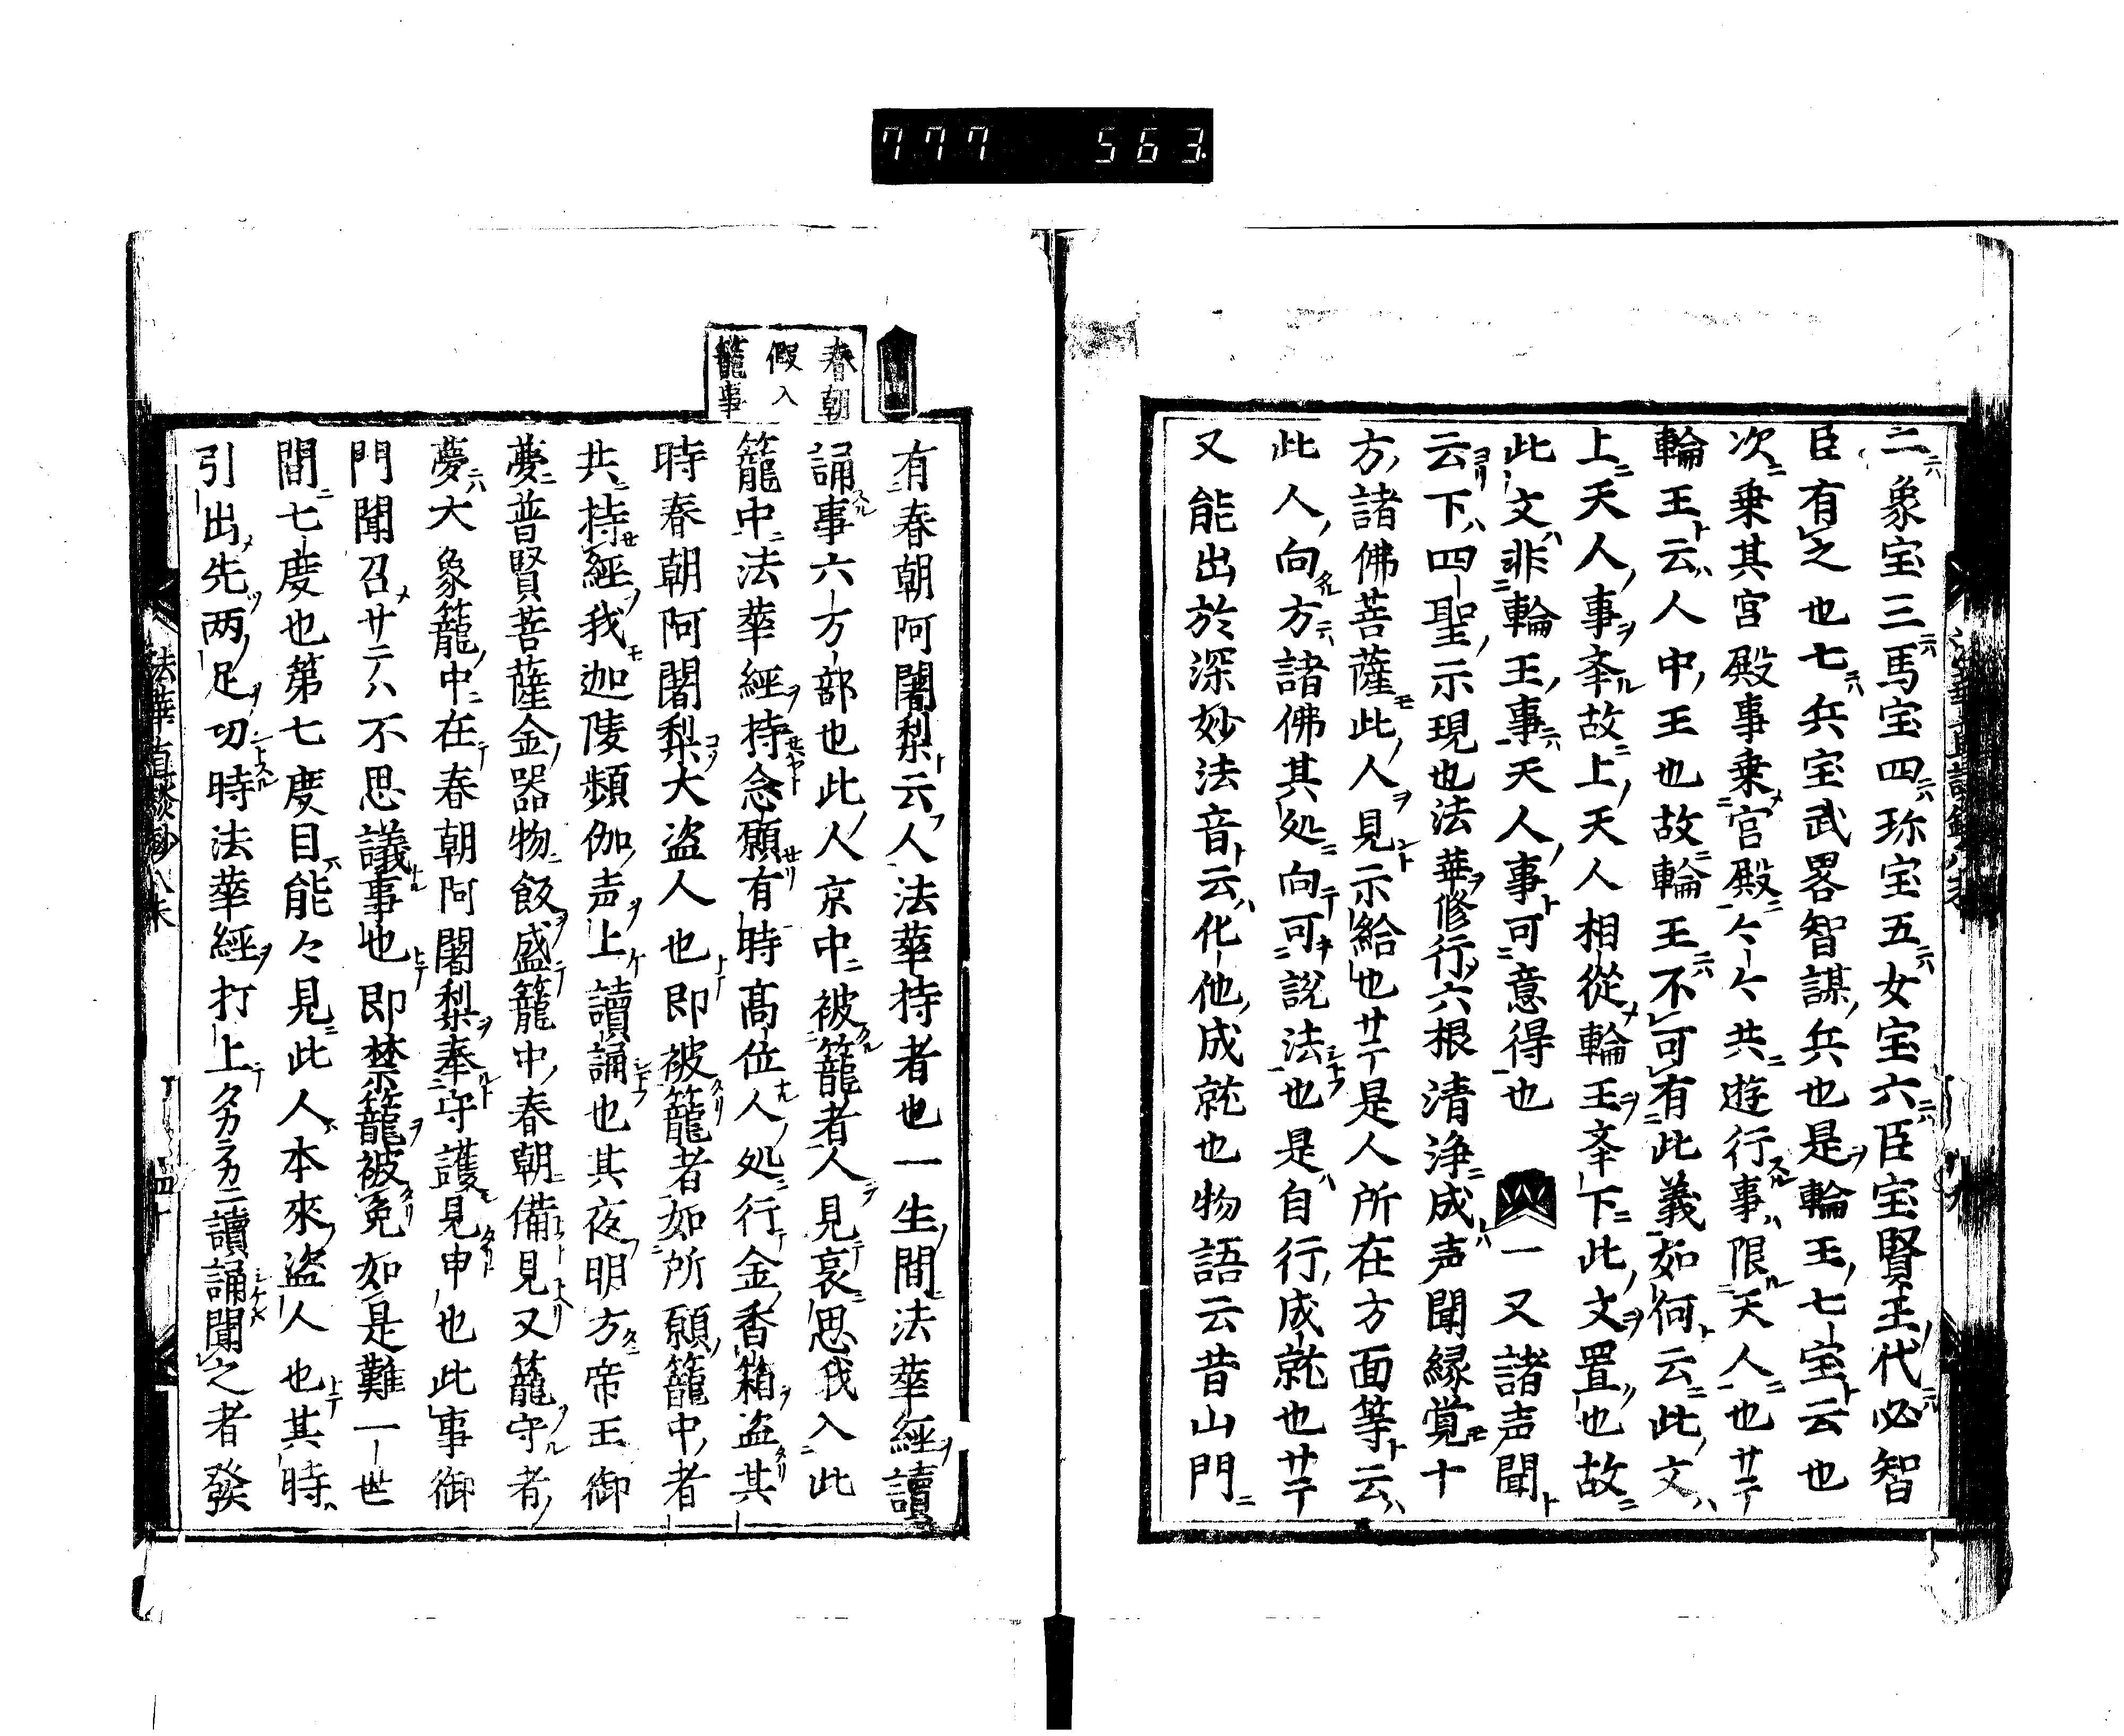 777 563
二象宝三馬宝四珎宝五女宝六臣宝賢王代必智
臣有之也七兵宝武畧智謀兵也是輪王七宝云也
次乗其宮殿事乗宮殿今今共遊行事限天人也廿テ
輪王云人中王也故輪王不可有此義如何云此文
上天人事夅故上天人相從輪王夅下此文置也故
此文非輪王事天人事可意得也 一又諸声聞
云下四聖示現也法華修行六根清浄成声聞縁覚十
方諸佛菩薩此人見示給也廿テ是人所在方面等云
此人向方諸佛其処向可說法也是自行成就也廿テ
又能出於深妙法音云化他成就也物語云昔山門
春朝
假入
籠事
有春朝阿闍梨云人法華持者也一生間法華經讀
誦事六万部也此人京中被籠者人見哀思我入此
籠中法華經持念願有時高位人処行金香箱盗其
時春朝阿闍梨大盗人也即被籠者如所願籠中者
共持經我迦陵頻伽声上讀誦也其夜明方帝王御
夢普賢菩薩金器物飯盛籠中春朝備見又籠守者
夢大象籠中在春朝阿闍梨奉守護見申也此事御
門聞召廿二ハ不思議事也即禁籠被免如是難一世
間七度也第七度目能々見此人本來盗人也其時
引出先两足切時法華經打上タカラカニ讀誦聞之者發
法華直談鈔八末 四十